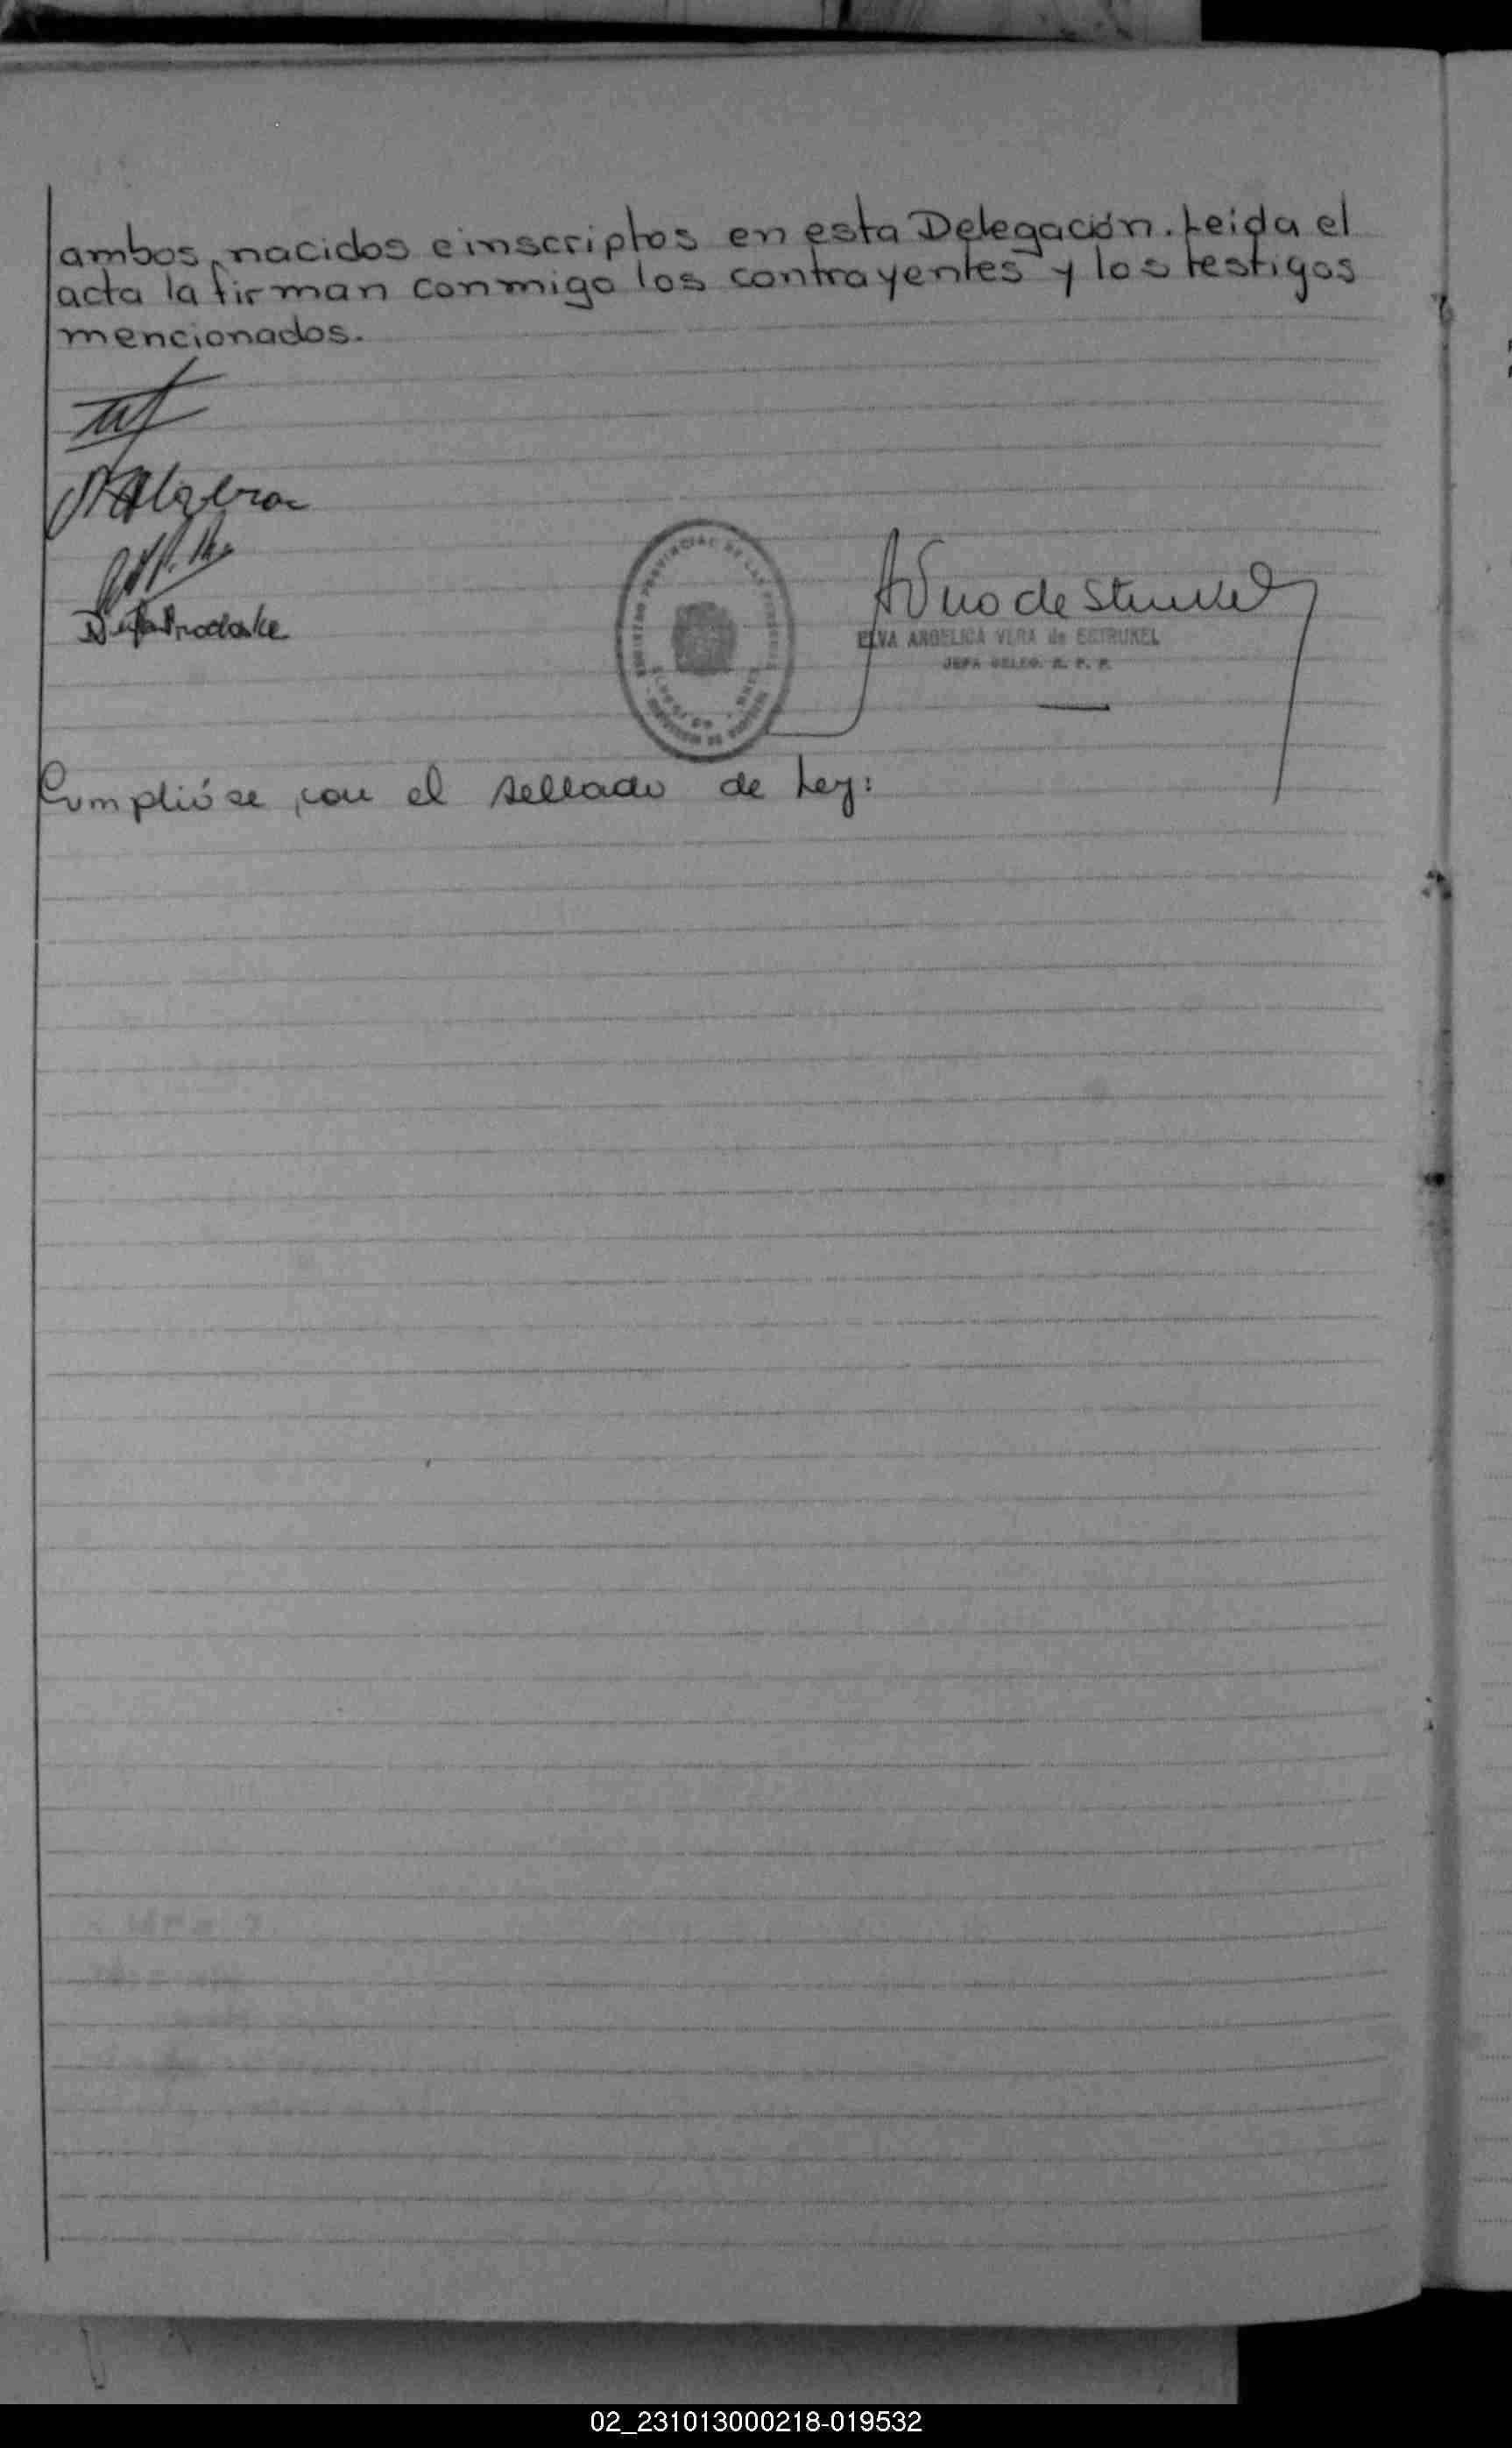 ambos, nacidos e inscriptos en esta Delegación. Leida el
acta la firman conmigo los contrayentes y los testigos
mencionados.
REGISTRO PROVINCIAL DE LAS PERSONAS
ELVA ANGELICA VERA de ESTRUKEL
JEFA DELEG. R. P. P.
Cumplióse con el sellado de Ley:
02_231013000218-019532